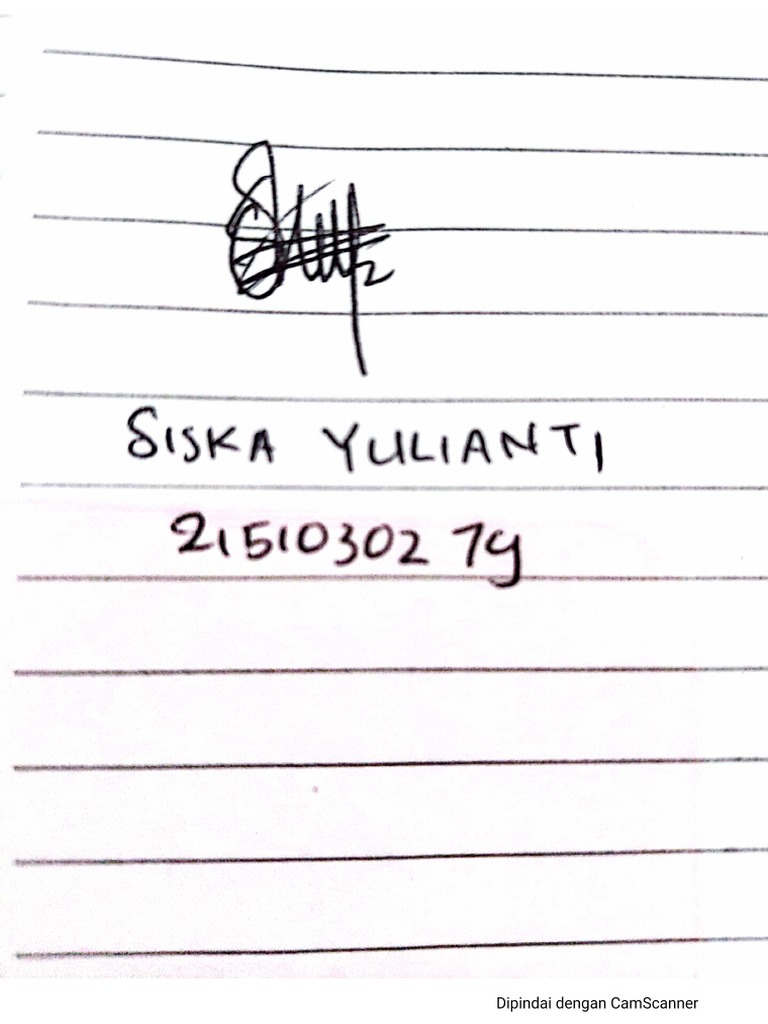 SISKA YULIANTI
2151030279
Dipindai dengan CamScanner